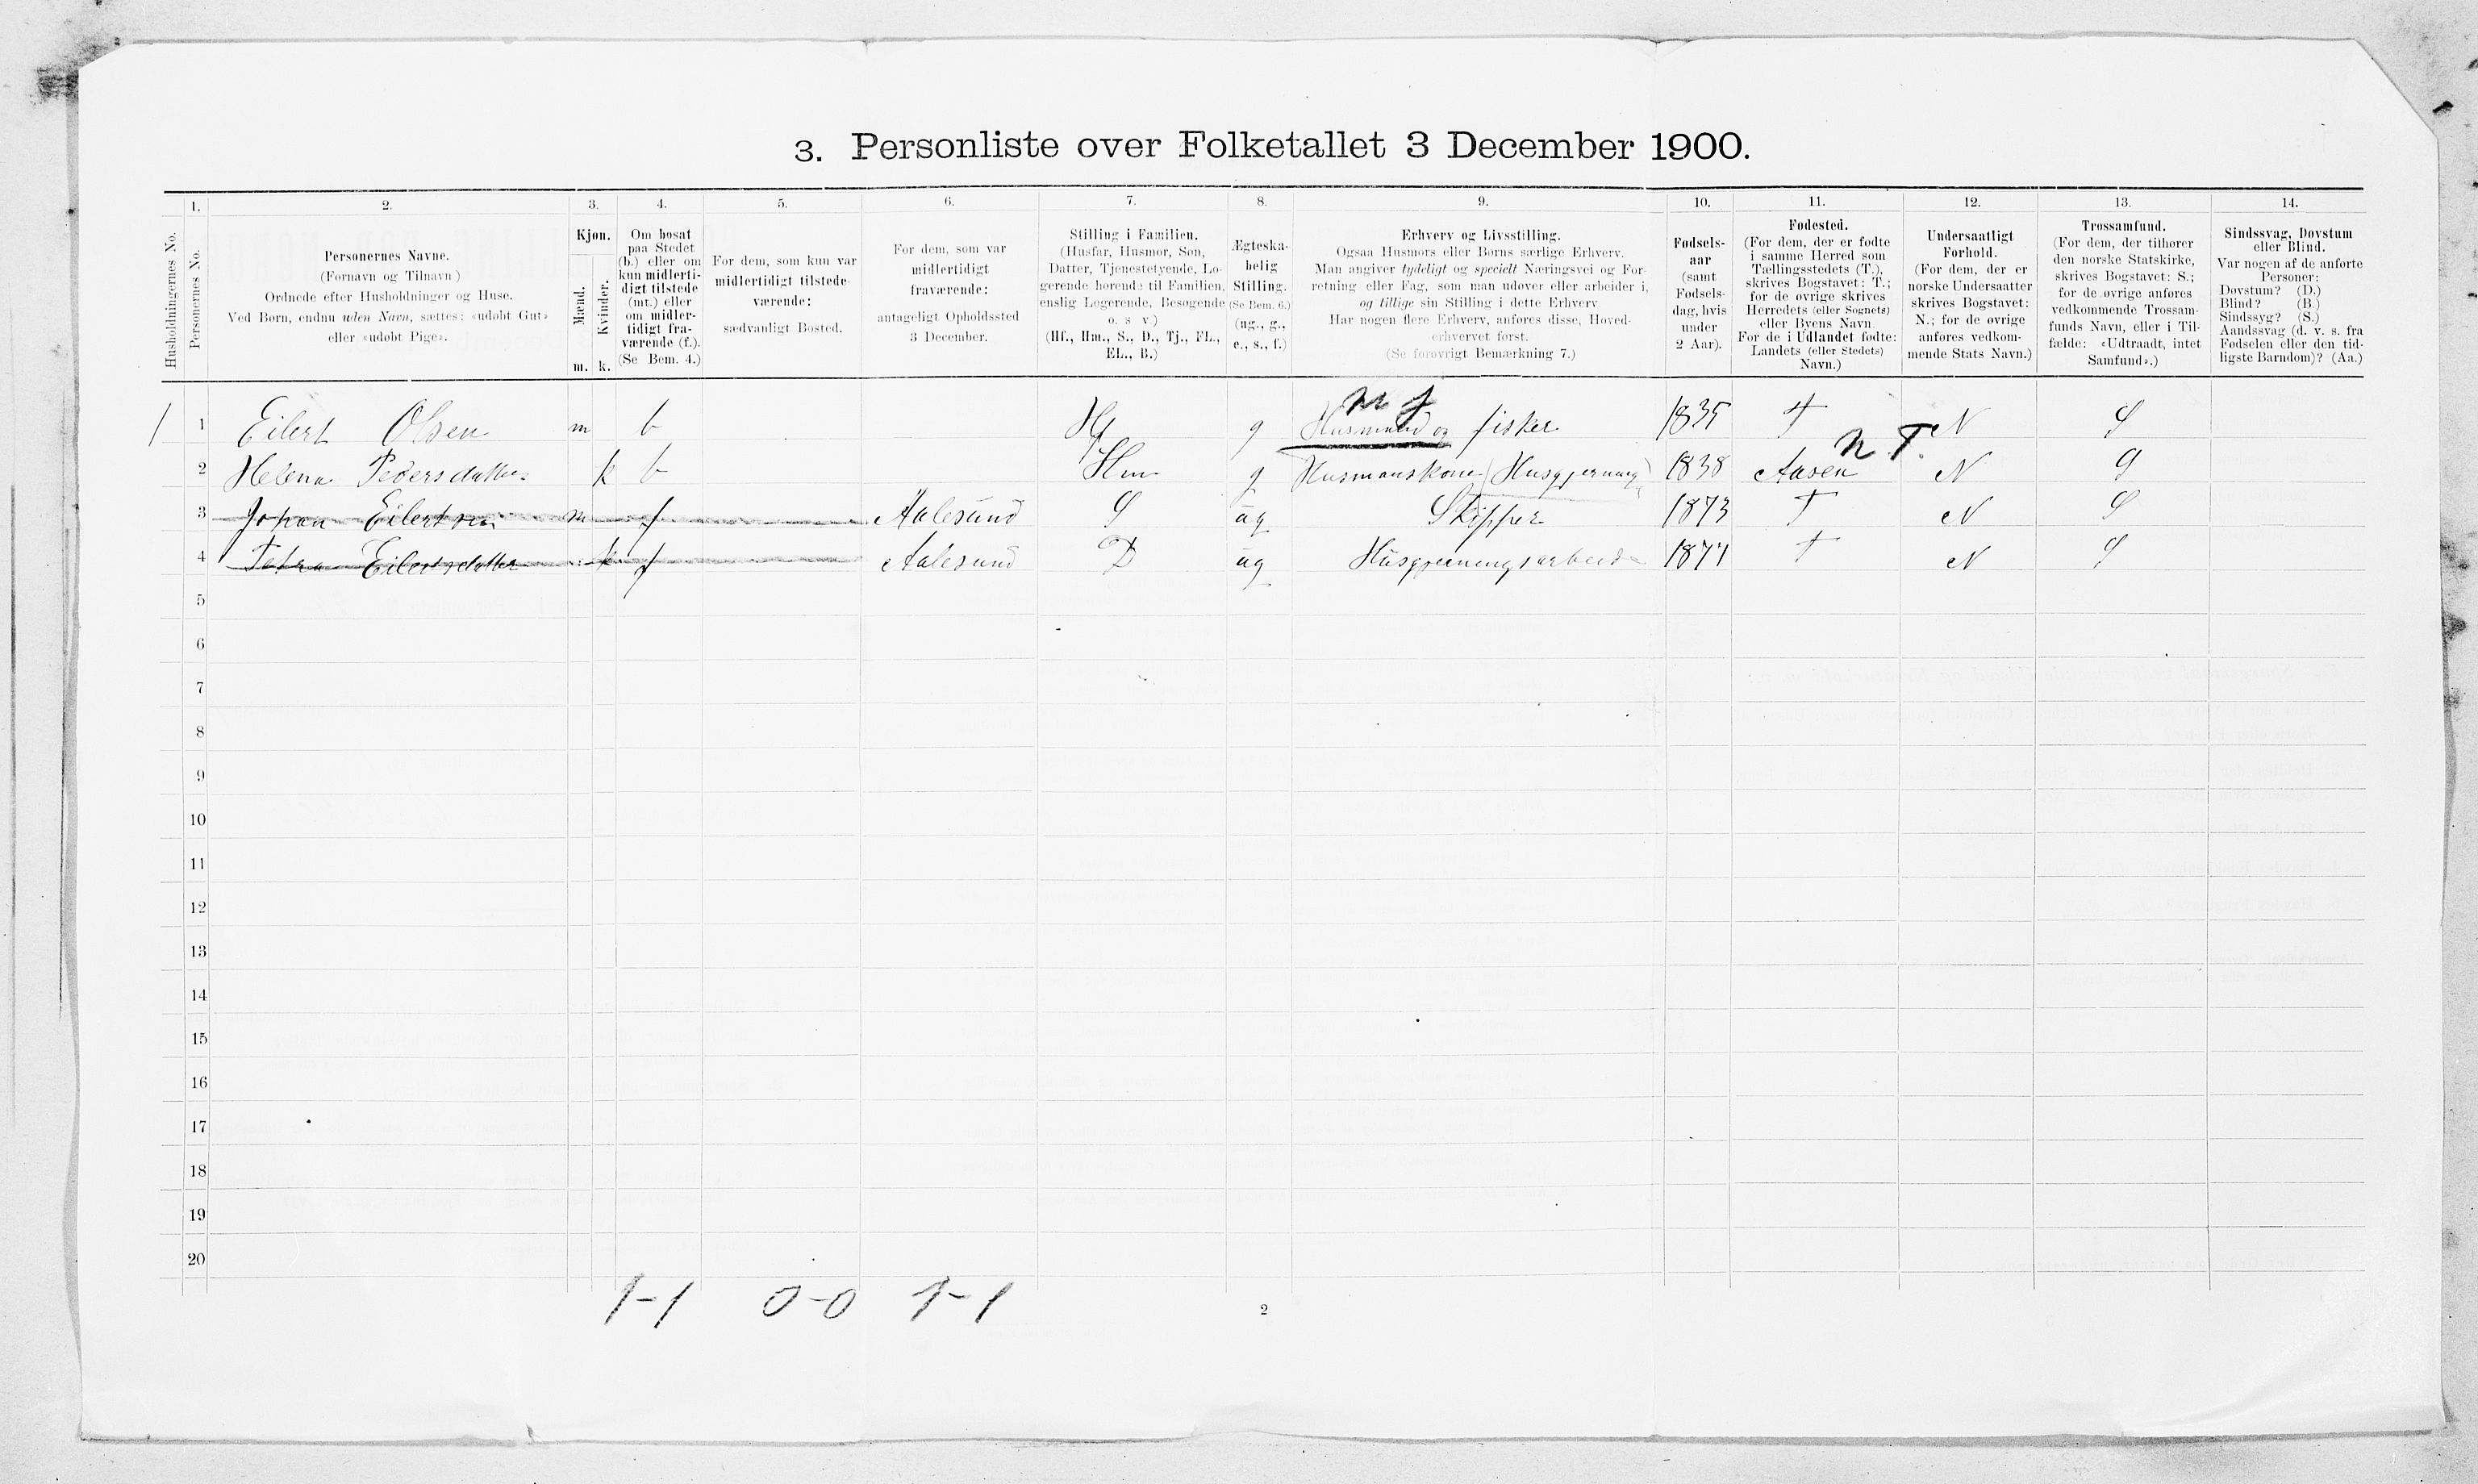 3. Personliste over Folketallet 3 December 1900.
1. 2. 3. 4. 5. 6. 7. 8. 9. 10. 11. 12. 13. 14.
Husholdningernes No.
Personernes No.
Personernes Navne.
(Fornavn og Tilnavn)
Ordnede efter Husholdninger og Huse.
Ved Børn, endnu uden Navn, sættes: «udøbt Gut»
eller «udøbt Pige».
Kjøn.
Mænd.
Kvinder.
m. k.
Om bosat
paa Stedet
(b.) eller om
kun midlerti-
digt tilstede
(mt.) eller
om midler-
tidigt fra-
værende (f.).
(Se Bem. 4.)
For dem, som kun var
midlertidigt tilstede-
værende:
sædvanligt Bosted.
For dem, som var
midlertidigt
fraværende:
antageligt Opholdssted
3 December.
Stilling i Familien.
(Husfar, Husmor, Søn,
Datter, Tjenestetyende, Lo-
gerende hørende til Familien,
enslig Logerende, Besøgende
o. s. v.)
(Hf., Hm., S., D., Tj., FL.,
EL., B.)
Ægteska-
belig
Stilling.
(Se Bem. 6.)
(ug., g.,
e., s., f.)
Erhverv og Livsstilling.
Ogsaa Husmors eller Børns særlige Erhverv.
Man angiver tydeligt og specielt Næringsvei og For-
retning eller Fag, som man udøver eller arbeider i,
og tillige sin Stilling i dette Erhverv.
Har nogen flere Erhverv, anføres disse, Hoved-
erhvervet først.
(Se forøvrigt Bemærkning 7.)
Fødsels-
aar
(samt
Fødsels-
dag, hvis
under
2 Aar).
Fødested.
(For dem, der er fødte
i samme Herred som
Tællingsstedets (T.),
skrives Bogstavet: T.;
for de øvrige skrives
Herredets (eller Sognets)
eller Byens Navn.
For de i Udlandet fødte:
Landets (eller Stedets)
Navn.)
Undersaatligt
Forhold.
(For dem, der er
norske Undersaatter
skrives Bogstavet:
N.; for de øvrige
anføres vedkom-
mende Stats Navn.)
Trossamfund.
(For dem, der tilhører
den norske Statskirke,
skrives Bogstavet: S.;
for de øvrige anføres
vedkommende Trossam-
funds Navn, eller i Til-
fælde: «Udtraadt, intet
Samfund».)
Sindssvag, Døvstum
eller Blind.
Var nogen af de anførte
Personer:
Døvstum? (D.)
Blind? (B.)
Sindssyg? (S.)
Aandssvag (d. v. s. fra
Fødselen eller den tid-
ligste Barndom)? (Aa.)
m f
1 1 Eilert Olsen m b Hf g Husmand og fisker 1835 T N S
n T.
2 Helena Pedersdatter k b Hm g Husmanskone (Husgjerning) 1838 Aasen N S
3 Johan Eilertsen m f Aalesund S ug Skipper 1873 T N S
4 Petra Eilertsdatter k f Aalesund D ug Husgjerningsarbeide 1877 T N S
5
6
7
8
9
10
11
12
13
14
15
16
17
18
19
20
1-1 0-0 1-1
2